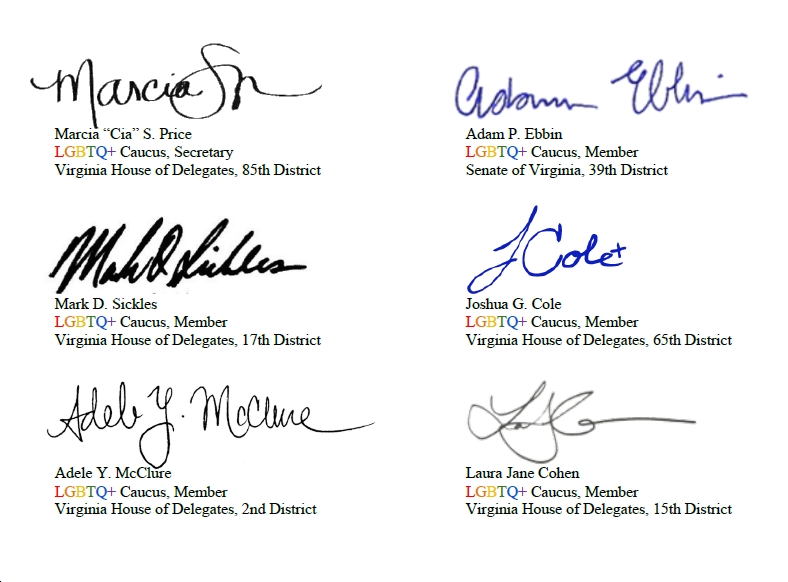 Marcia S P
Marcia “Cia” S. Price
LGBTQ+ Caucus, Secretary
Virginia House of Delegates, 85th District
Adam Ebbin
Adam P. Ebbin
LGBTQ+ Caucus, Member
Senate of Virginia, 39th District
Mark D Sickles
Mark D. Sickles
LGBTQ+ Caucus, Member
Virginia House of Delegates, 17th District
J Cole
Joshua G. Cole
LGBTQ+ Caucus, Member
Virginia House of Delegates, 65th District
Adele Y. McClure
Adele Y. McClure
LGBTQ+ Caucus, Member
Virginia House of Delegates, 2nd District
Laura Jane Cohen
LGBTQ+ Caucus, Member
Virginia House of Delegates, 15th District